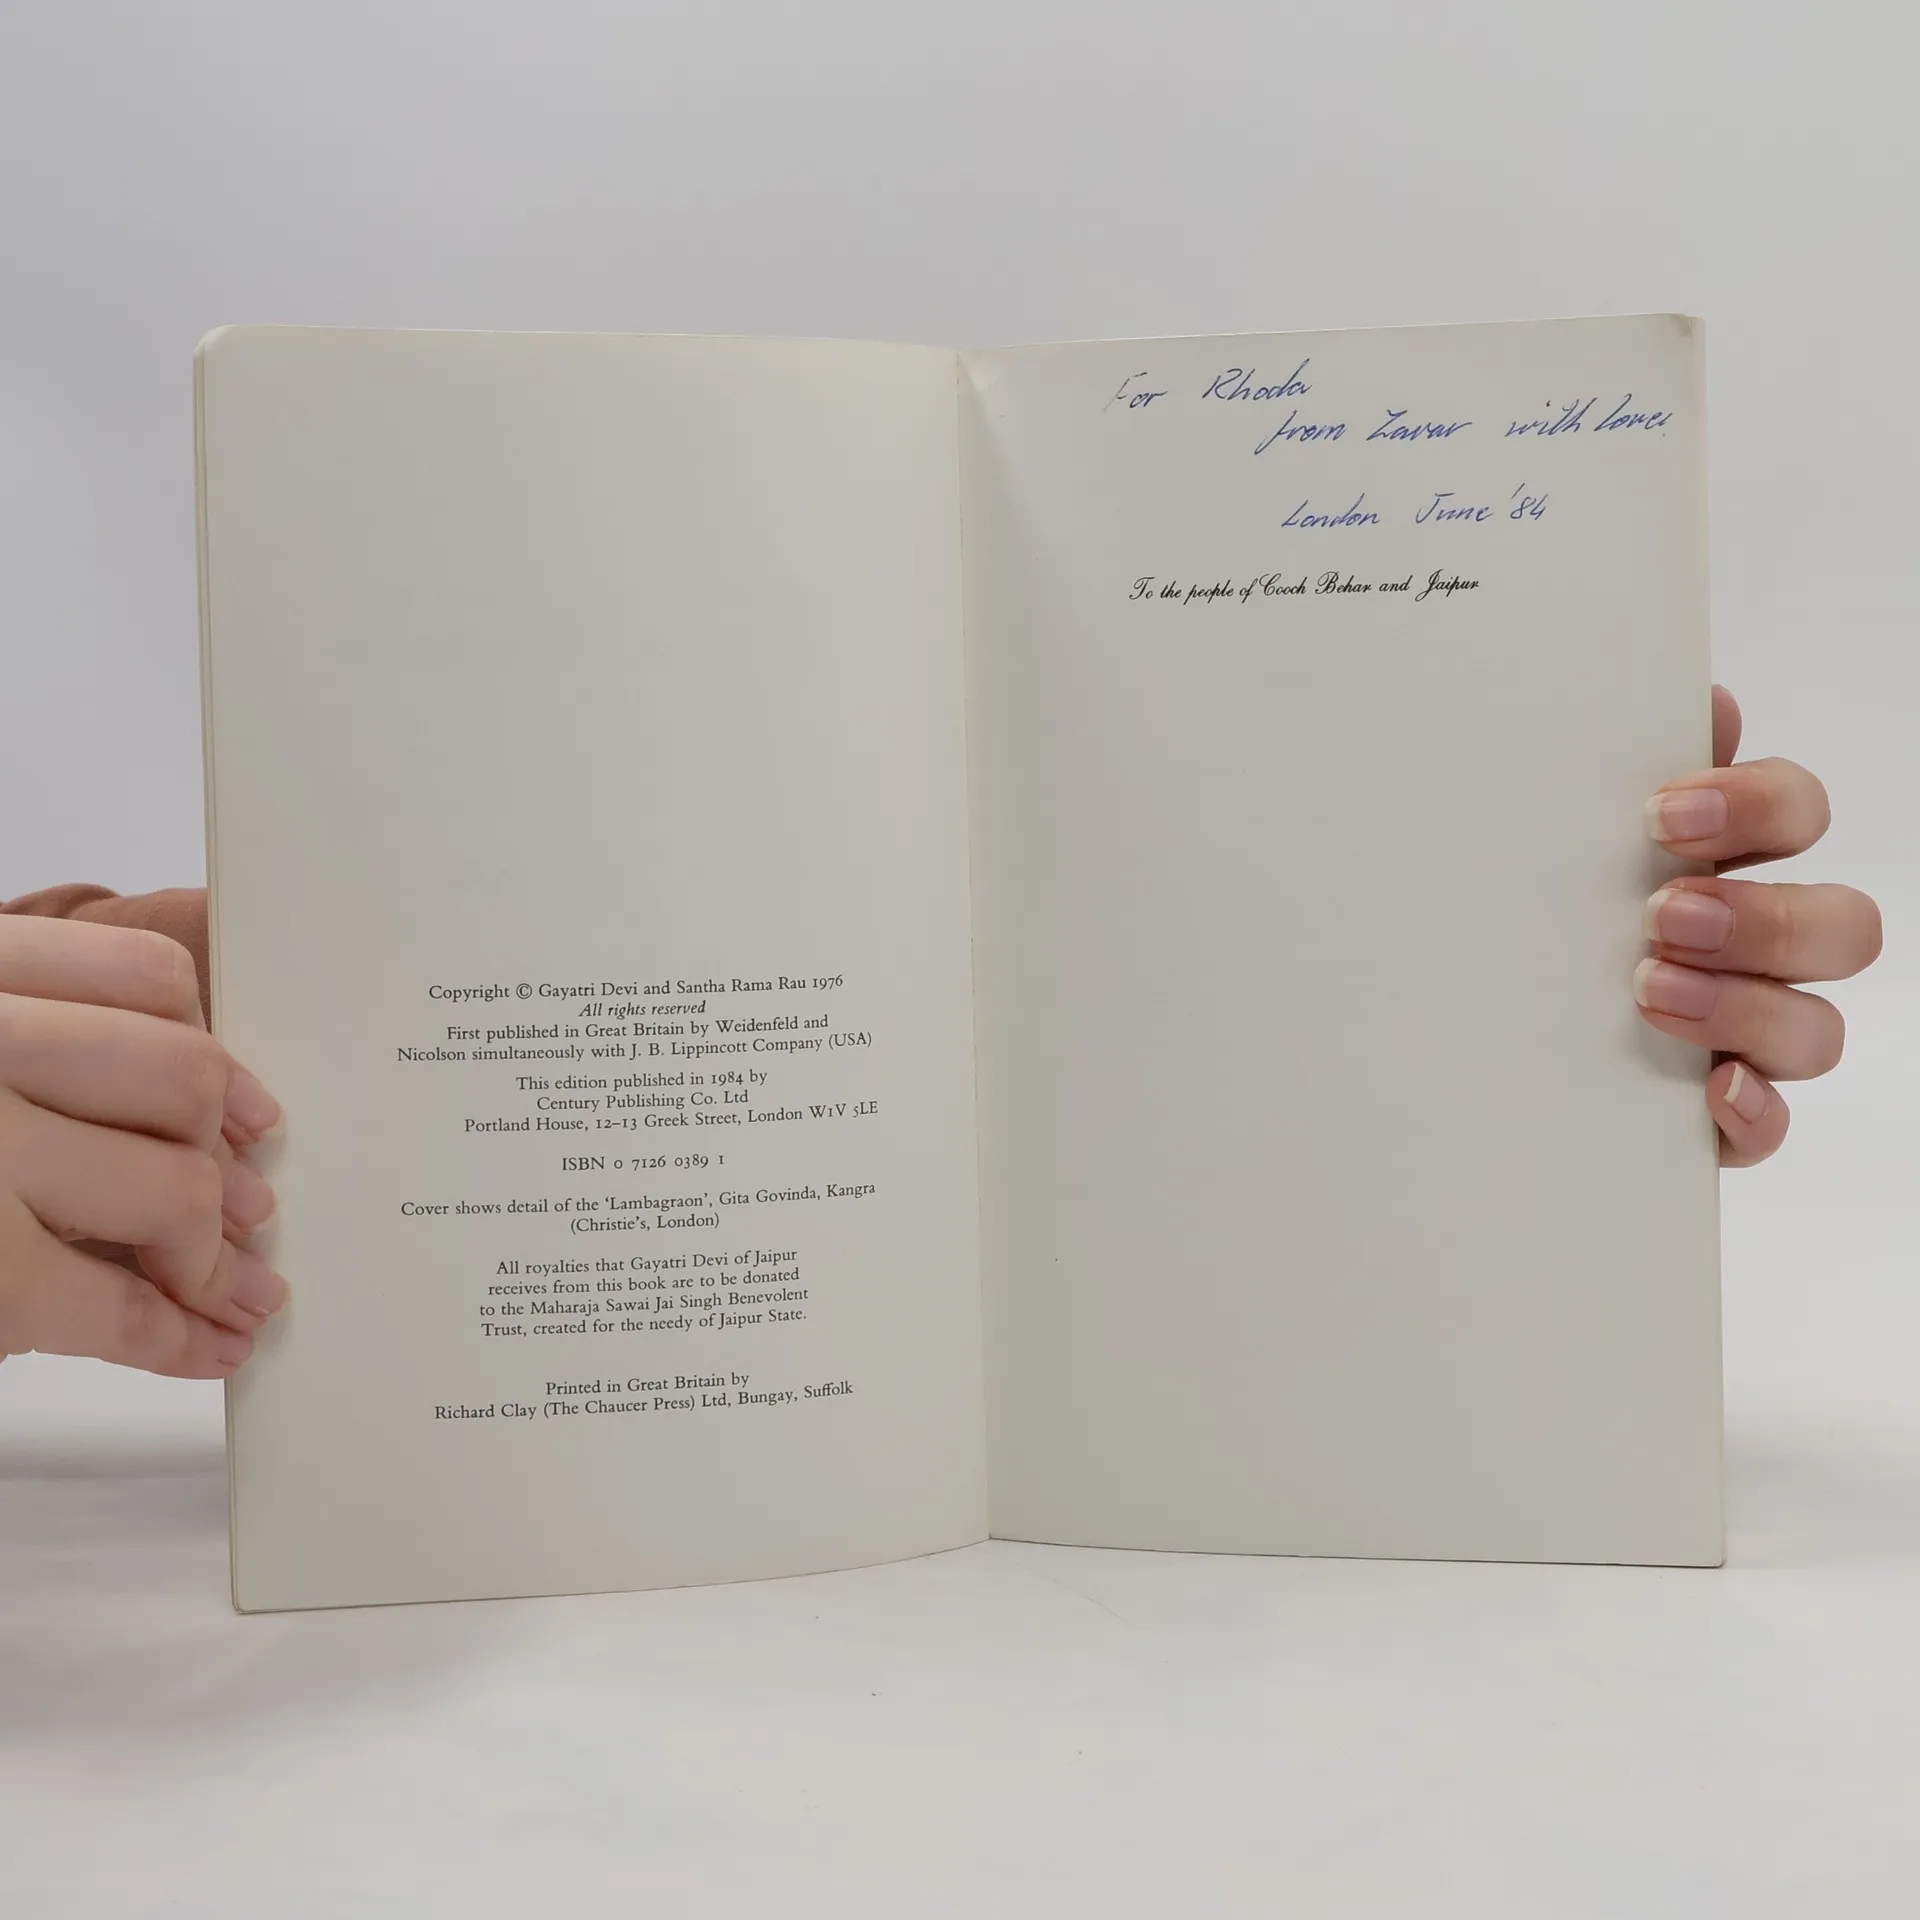 Copyright © Gayatri Devi and Santha Rama Rau 1976
All rights reserved
First published in Great Britain by Weidenfeld and
Nicolson simultaneously with J. B. Lippincott Company (USA)
This edition published in 1984 by
Century Publishing Co. Ltd
Portland House, 12–13 Greek Street, London W1V 5LE
ISBN 0 7126 0389 1
Cover shows detail of the ‘Lambagraon’, Gita Govinda, Kangra
(Christie’s, London)
All royalties that Gayatri Devi of Jaipur
receives from this book are to be donated
to the Maharaja Sawai Jai Singh Benevolent
Trust, created for the needy of Jaipur State.
Printed in Great Britain by
Richard Clay (The Chaucer Press) Ltd, Bungay, Suffolk
For Rhoda
from Zavar with love.
London June '84
To the people of Cooch Behar and Jaipur